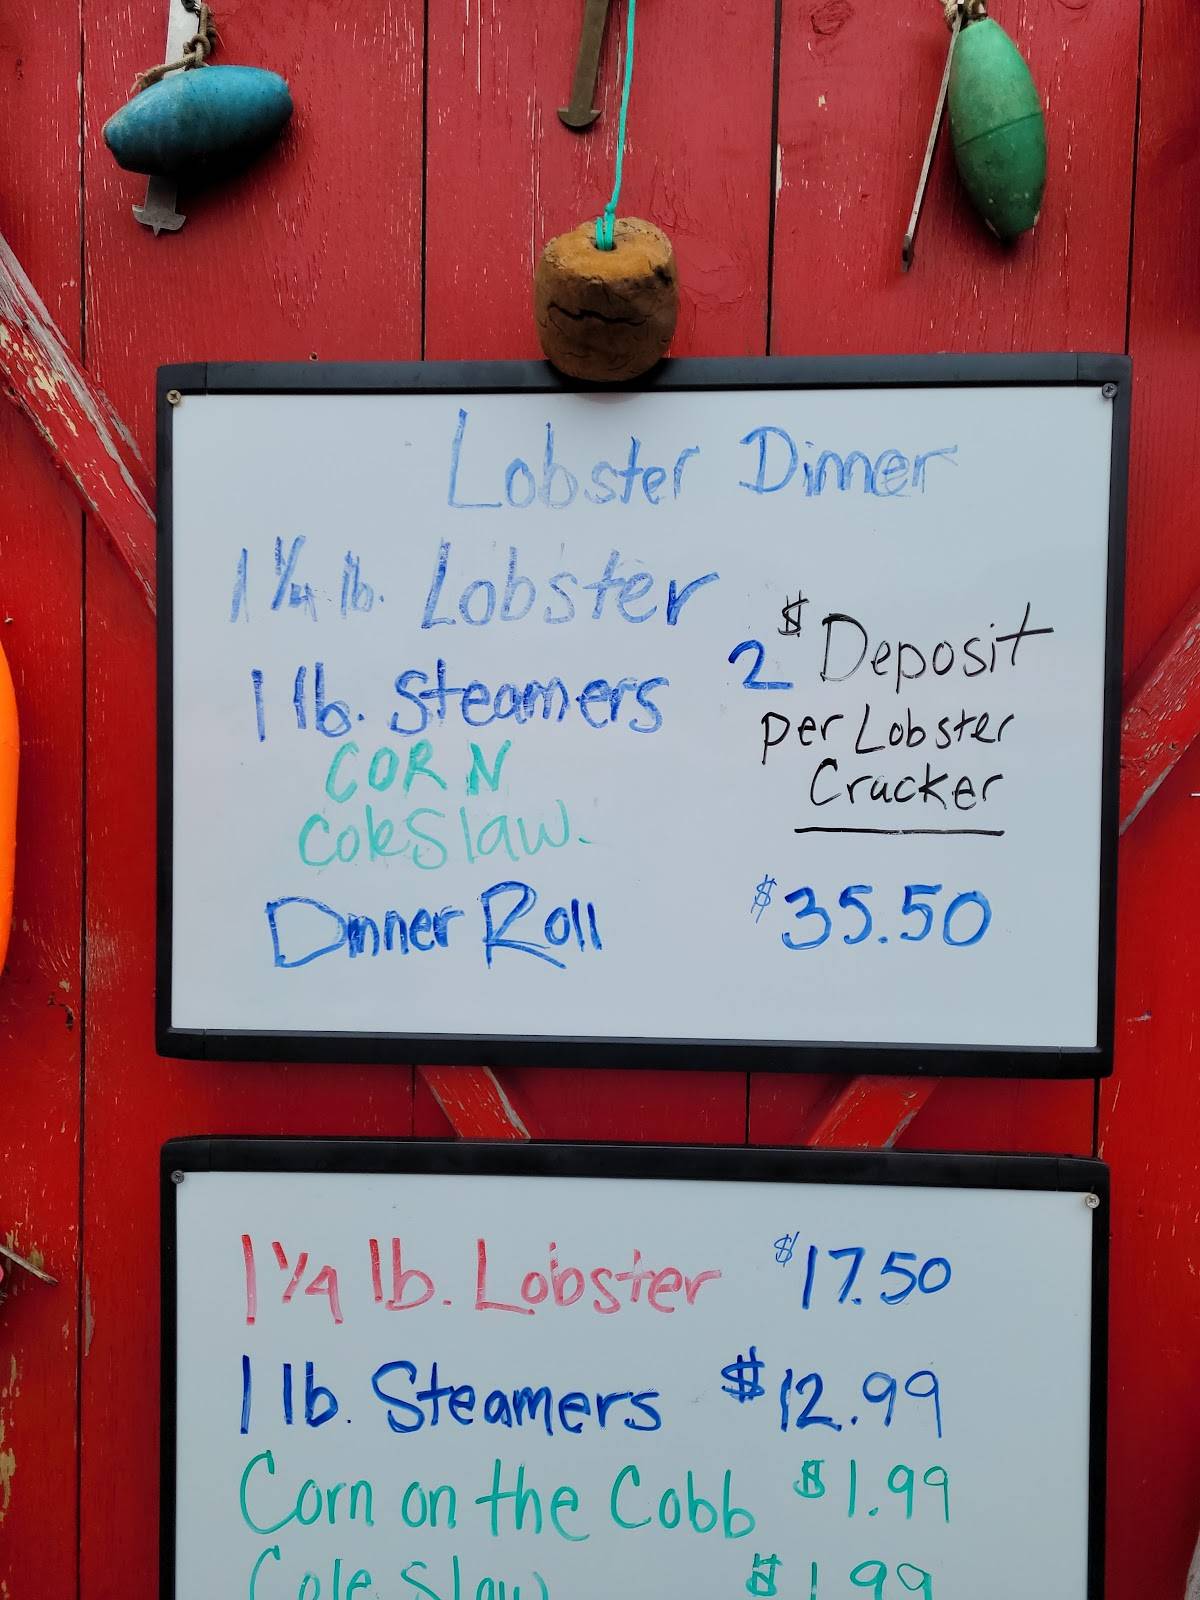 Lobster Dinner
1 1/4 lb. Lobster
1 lb. Steamers
CORN
ColeSlaw.
Dinner Roll
2$ Deposit
per Lobster
Cracker
$35.50
1 1/4 lb. Lobster $17.50
1 lb. Steamers $12.99
Corn on the Cobb $1.99
Cole Slaw $1.99